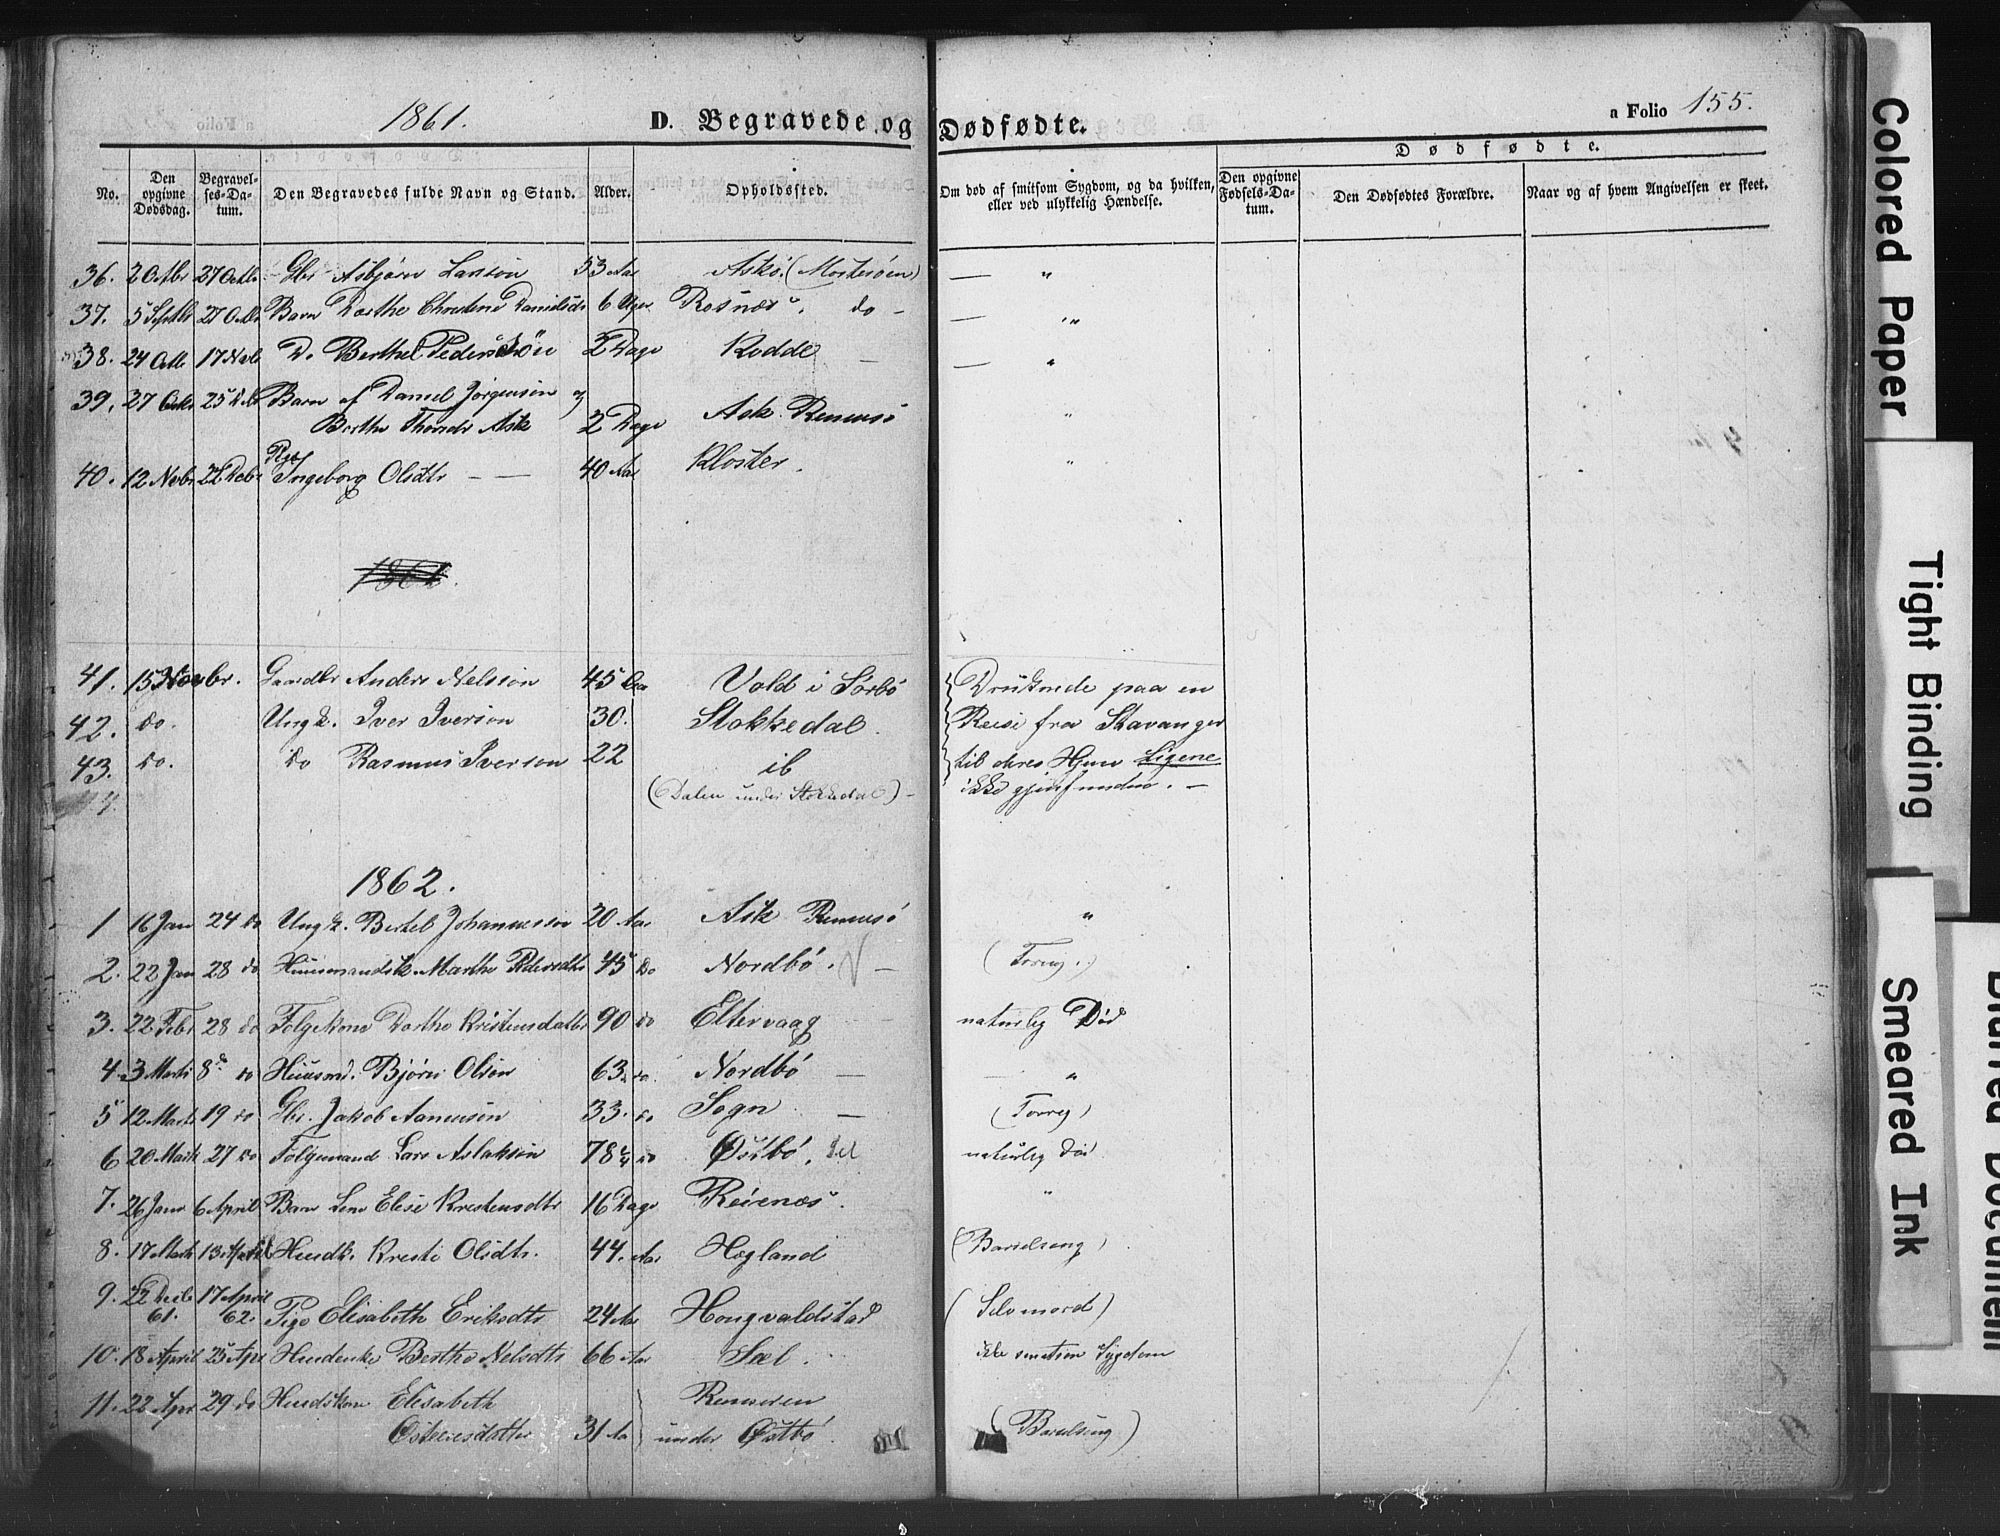 1861. D. Begravede og Dødfødte. a Folio 155.
Dødfødte.
No. Den opgivne Dødsdag. Begravelses-Datum. Den Begravedes fulde Navn og Stand. Alder. Opholdssted. Om død af smitsom Sygdom, og da hvilken, eller ved ulykkelig Hændelse. Den opgivne Fødsels-Datum. Den Dødfødtes Forældre. Naar og af hvem Angivelsen er skeet.
36. 2 Octbr 27 Octbr Gbr Asbjørn Larsøn 53 Aar Askø (Mosterøen) — "
37. 5 Septbr 27 Octbr Barn Dorthe Danielsdr 6 Uger Rosnæs. do — — "
38. 24 Octb 17 Novb D. Berthel Pedersøn 2 Dage Rodde — — "
39. 27 Octbr 25 Barn af Daniel Jørgensøn og
Berthe Thorsdr Ask 2 Dage Ask Rennesø "
40. 12 Nvbr 22 Decbr Pige Ingeborg Olsdtr — 40 Aar Kloster. "
41. 15 Novbr. Gaardbr Anders Nelsson 45 Aar Vold i Sørbø Druknede paa en
42. do. Ungk. Iver Iverson 30. Stokkedal. Reise fra Stavanger
43. do. do Rasmus Iverson 22 ib til deres Hjem Ligene
(Dalen under Stokkedal) — ikke gjenfundne. —
1862.
1 16 Jan 24 do Ungk. Bertel Johannesson 20 Aar Ask Rennesø "
2. 22 Jan 28 do Huusmandsk Marthe Pedersdtr 45 do Nordbø. N — (Tæring.)
3. 22 Febr 28 do Folgekone Dorthe Kristensdatter 90 do Eltervaag naturlig Død
4. 3 Marts 8de do Huusmd. Bjørn Olsøn 63. do. Nordbø — — "
5 12 Marts 19 do Gbr. Jakob Aanensøn 33. do Sogn — (Tærig)
6 20 Marts 27 do Folgemand Lars Aslaksøn 78 do Østbø. naturlig Død
7. 26 Janr 6 April Barn Elise Kristensdtr 16 Dage Reienæs. "
8. 17 Marts 13 April Huusdk. Kresti Olsdtr. 44. Aar Hægland (Barselseng)
9. 22 Decbr 61. 17 April 62. Pige Elisabeth Eriksdtr 24 Aar Hongvaldstad (Selvmord)
10. 18 April 25 Apr Berthe Nelsdtr 66 Aar Sæl. ikke smitsom Sygdom
11. 22 Apr 29 do Huusdskone Elisabeth Rennesøen
Ostensdatter 31 Aa under Østbø. (Barselseng)
Colored Paper
Tight Binding
Smeared Ink
Blurred Document